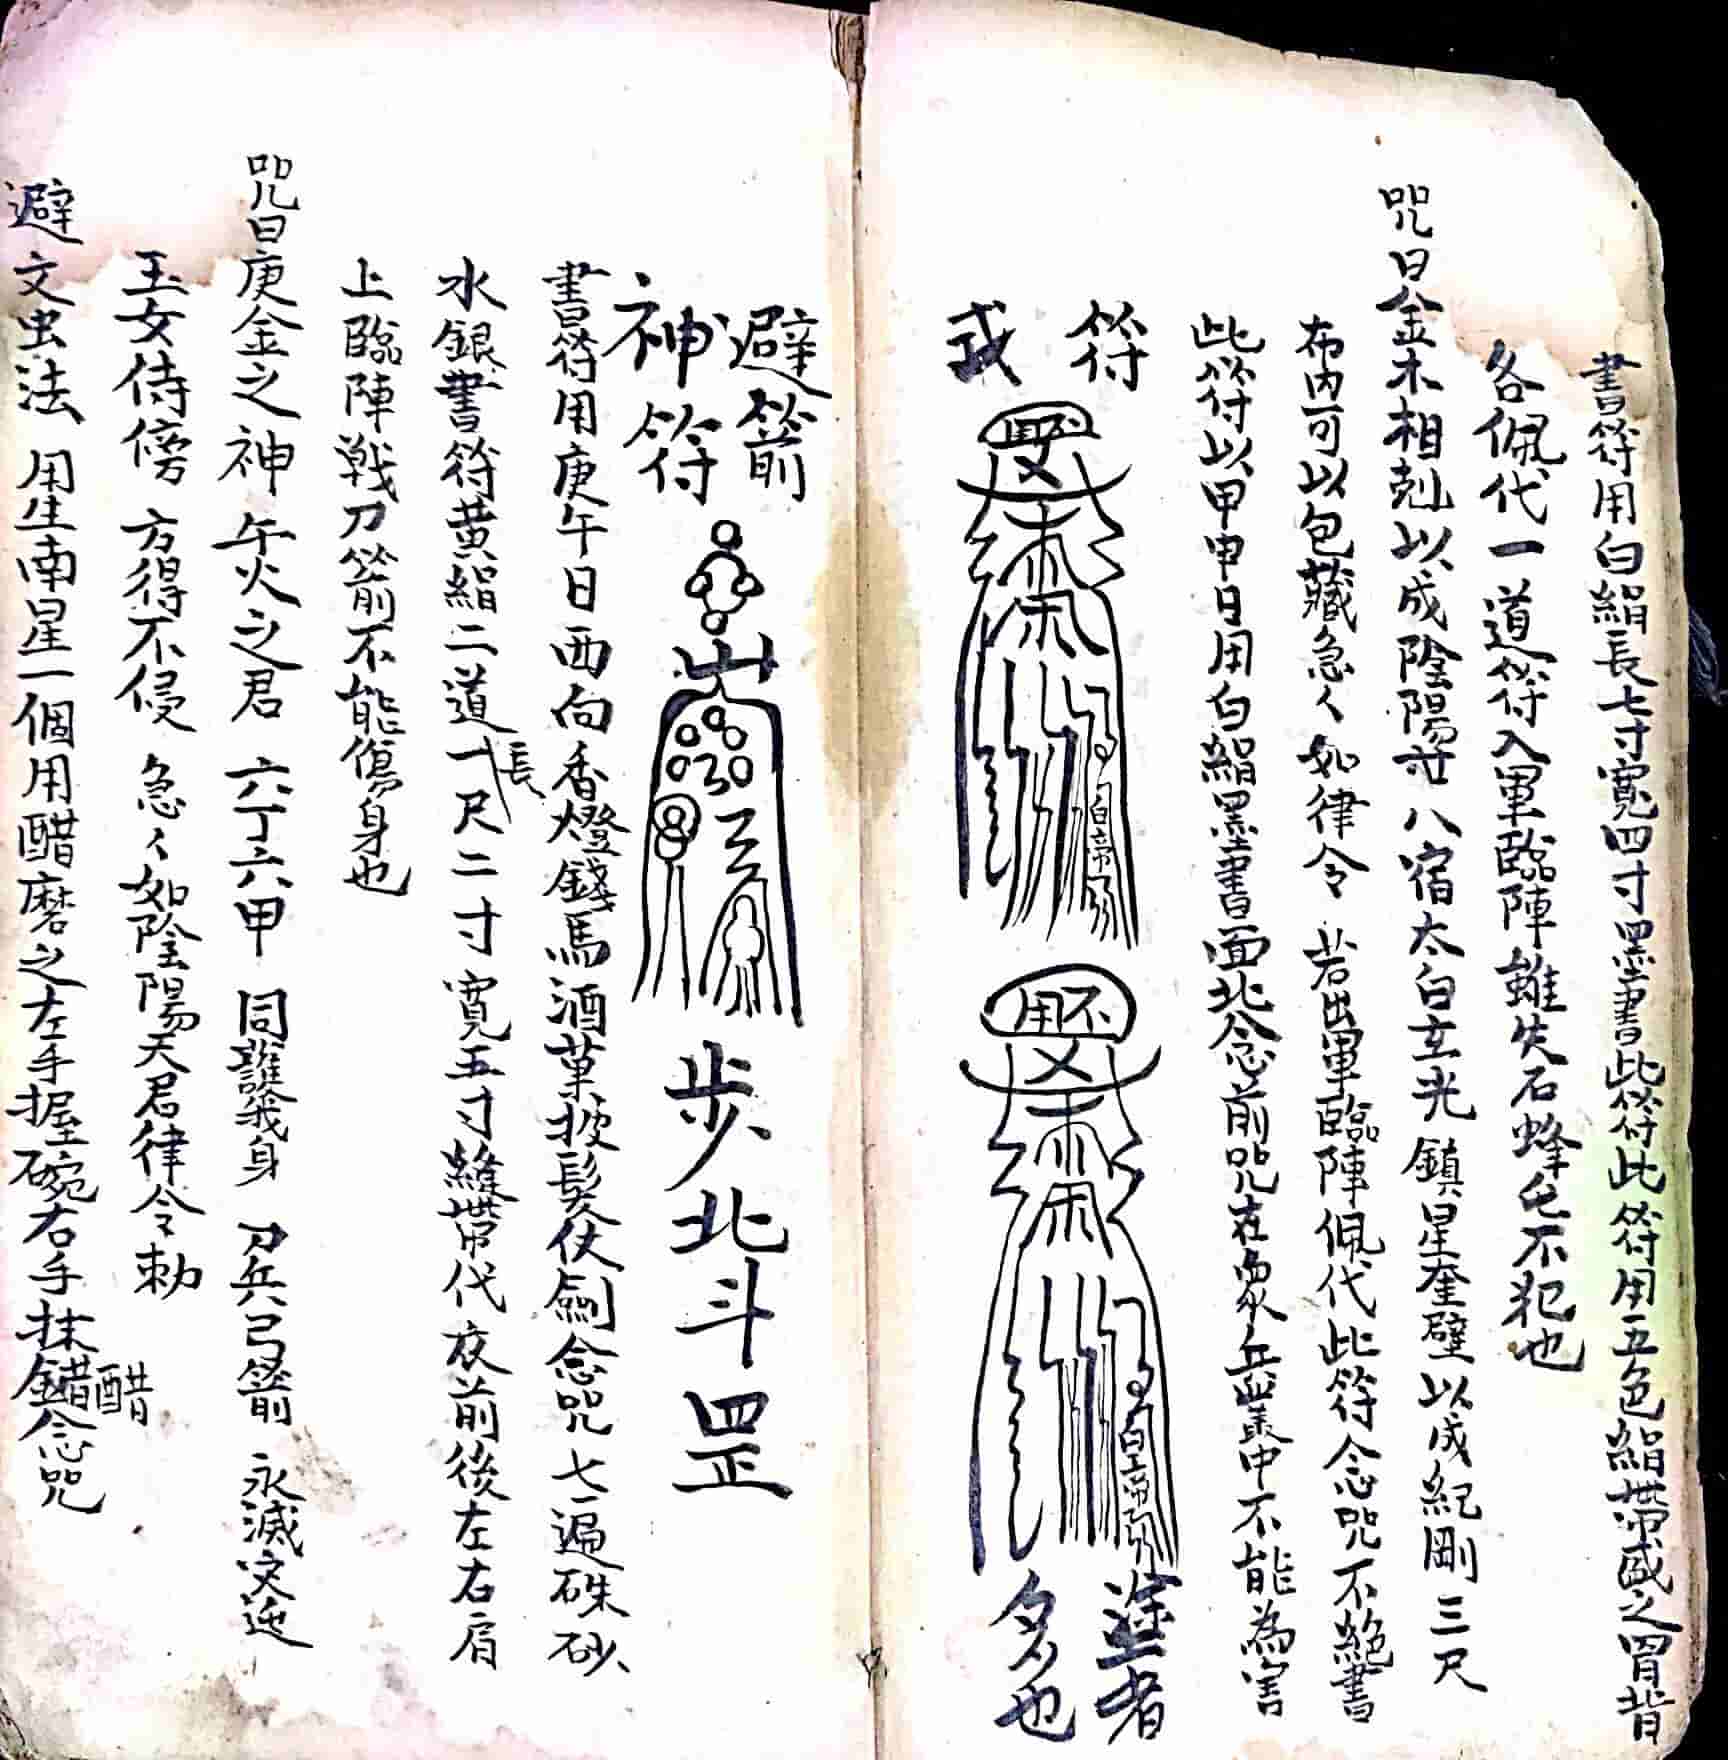 書符用白絹長七寸寬四寸墨書此符此符用五色絹帶盛之胃背
各佩代一道符入軍臨陣雖失石蜂屯不犯也
咒曰金木相剋以成陰陽廿八宿太白玄光鎮星奎壁以成紀剛三尺
布內可以包藏急々如律令 若出軍臨陣佩代此符念咒不絕書
此符以甲申日用白絹墨書面北念前咒在象兵盡中不能為害
符 白帝 皇帝 塗者
或 多也
避箭
神符 步北斗罡
書符用庚午日西向香燈錢馬酒菓披髮仗劍念咒七遍硃砂
水銀書符黃絹二道長一尺二寸寬五寸縫帶代衣前後左右肩
上臨陣戰刀箭不能傷身也
咒曰庚金之神午火之君六丁六甲同護我身刀兵弓箭永滅
玉女侍傍方得不侵急々如陰陽天君律令勅
避文虫法用生南星一個用醋磨之左手握碗右手抹錯醋念咒